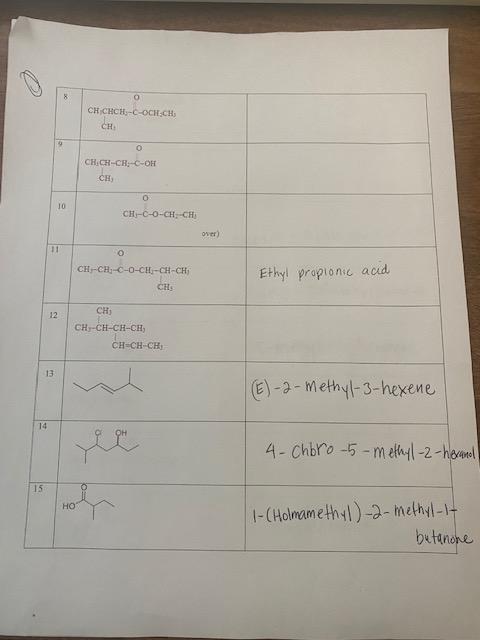 8
O
CH₃CHCH₂-C-OCH₂CH₃
CH₃
9
O
CH₃CH-CH₂-C-OH
CH₃
10
O
CH₃-C-O-CH₂-CH₃
over)
11
O
CH₃-CH₂-C-O-CH₂-CH-CH₃
CH₃
Ethyl propionic acid
12
CH₃
CH₃-CH-CH-CH₃
CH=CH-CH₃
13
(E)-2-methyl-3-hexene
14
Cl OH
4-Chbro-5-methyl-2-hexanol
15
O
HO
1-(Holmamethyl)-2-methyl-1-
butanone